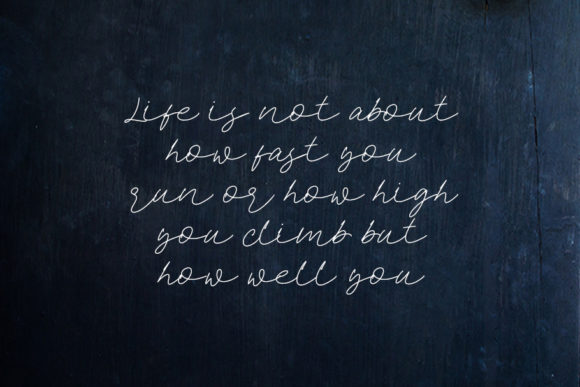 Life is not about
how fast you
run or how high
you climb but
how well you